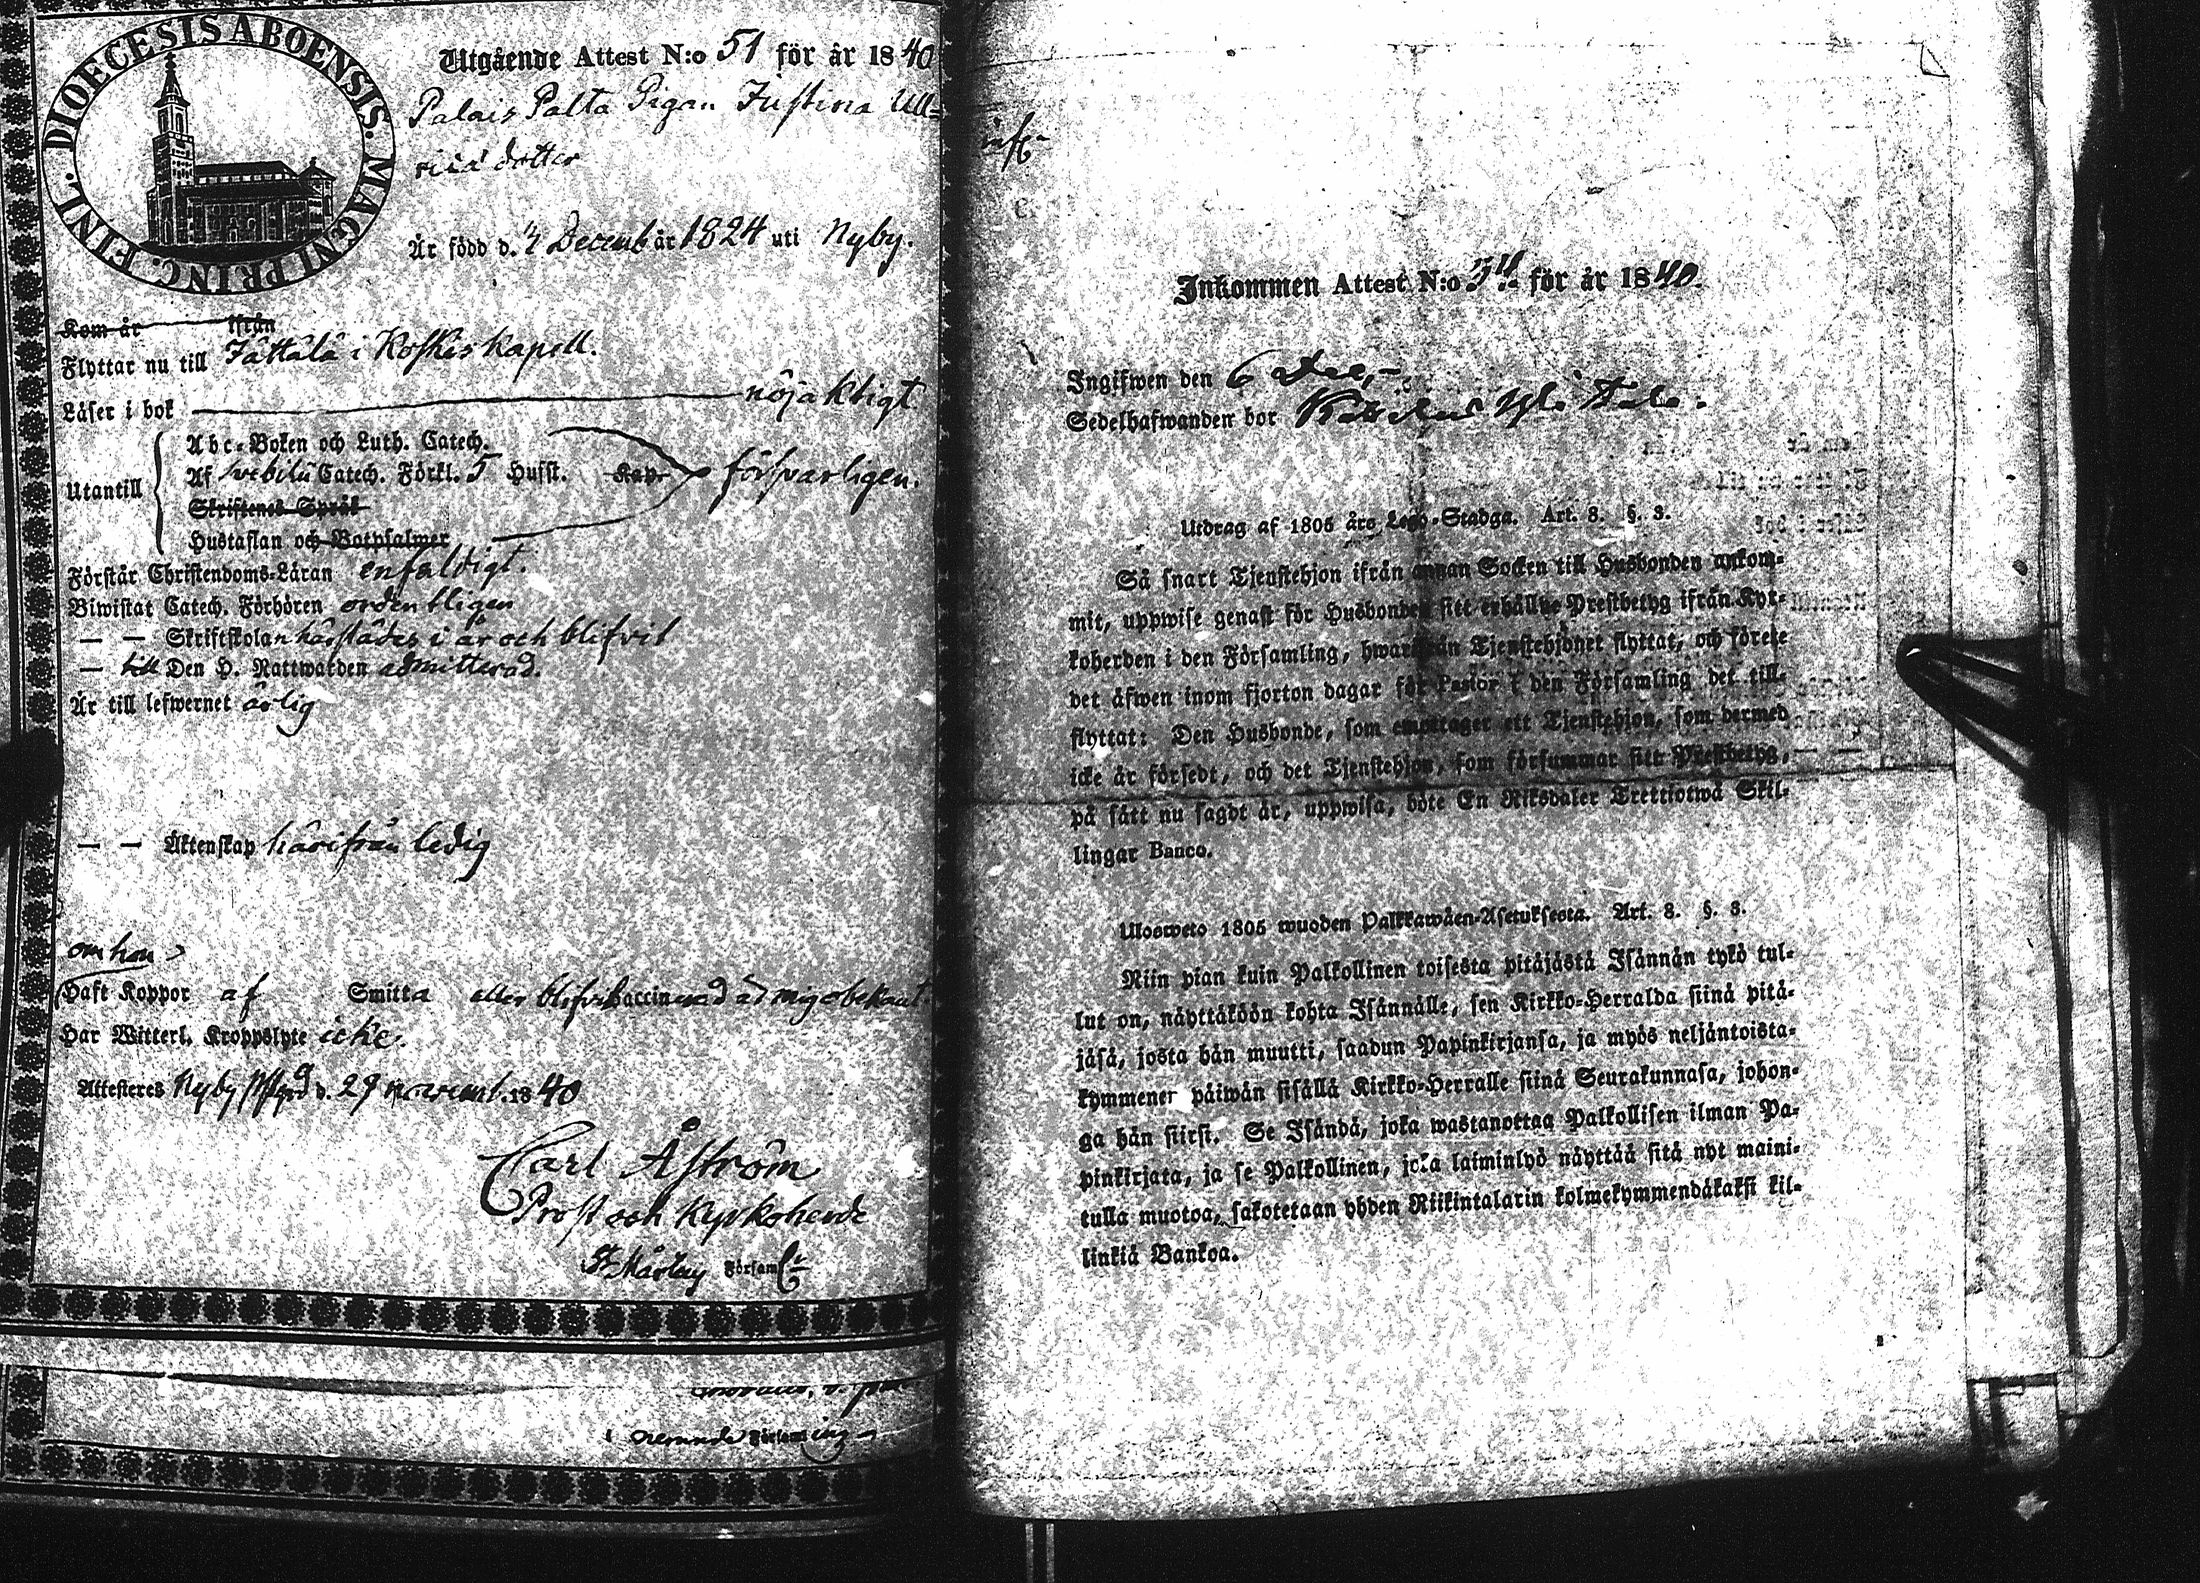 DIOECESIS ABOENSIS. MAGNI PRINC. FINL.
Utgående Attest N:o 51 för år 1840
Palais Palta Pigan Justina Ull-
ricá dotter
Är född d. 4 Decemb år 1824 uti Nyby.
Kom år ifrån
Flyttar nu till Jättälä i Koskis Kapell.
Läser i bok nöjaktigt
Utantill
Abc-Boken och Luth. Catech.
Af Svebilii Catech. Förkl. 5 Husst. Kap.
försvarligen.
Skriftenes Språk
Hustaflan och Botpsalmer
Förstår Christendoms-Läran enfaldigt.
Biwistat Catech. Förhören ordentligen
— — Skriftskolan härstädes i år och blifvit
— till Den H. Nattwarden admitterad.
Är till lefwernet ärlig
— — Äktenskap härifrån ledig
om hon
Haft Koppor af Smitta eller blifvit vaccinerad är mig obekant.
Har Witterl. Kroppslyte icke.
Attesteres Nyby Pstgrd d. 29 novemb. 1840
Carl Åström
Prost och Kyrkoherde
St Mårtens Församl
i nemnde Församling
Inkommen Attest N:o 54 för år 1840.
Ingifwen den 6 Dec,
Sedelhafwanden bor
Utdrag af 1805 års Lego-Stadga. Art. 8. §. 3.
Så snart Tjenstehjon ifrån annan Socken till Husbonden ankom-
mit, uppwise genast för Husbonden sitt erhållne Prestbetyg ifrån Kyr-
koherden i den Församling, hwarifrån Tjenstehjonet flyttat, och förete
det äfwen inom fjorton dagar för Pastor i den Församling det till-
flyttat: Den Husbonde, som emottager ett Tjenstehjon, som dermed
icke är försedt, och det Tjenstehjon, som försummar sitt Prestbetyg,
på sätt nu sagdt är, uppwisa, böte En Riksdaler Trettiotwå Skil-
lingar Banco.
Ulosweto 1805 wuoden Palkkawäen-Asetuksesta. Art. 8. §. 3.
Niin pian kuin Palkollinen toisesta pitäjästä Isännän tykö tul-
lut on, näyttäköön kohta Isännälle, sen Kirkko-Herralda siinä pitä-
jäsä, josta hän muutti, saadun Papinkirjansa, ja myös neljäntoista-
kymmenen päiwän sisällä Kirkko-Herralle siinä Seurakunnasa, johon-
ga hän siirsi. Se Isändä, joka wastanottaa Palkollisen ilman Pa-
pinkirjata, ja se Palkollinen, joka laiminlyö näyttää sitä nyt maini-
tulla muotoa, sakotetaan yhden Riikintalarin kolmekymmendäkaksi kil-
linkiä Bankoa.